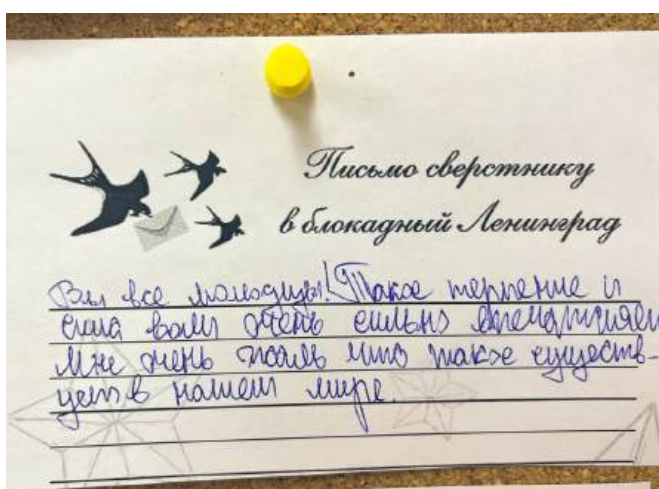 Письмо сверстнику
в блокадный Ленинград
Вы все молодцы! Такое терпение и
сила воли очень сильно впечатляет
Мне очень жаль что такое существ-
ует в нашем мире.